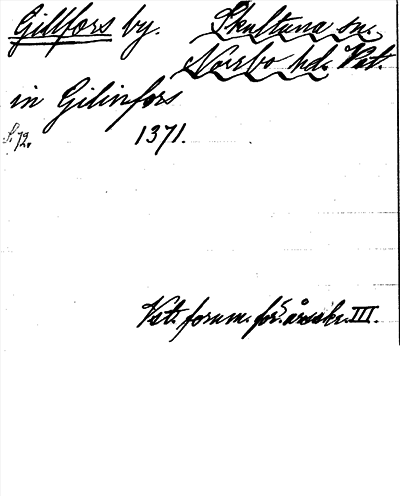 Gillfors by. Skultuna sn.
Norrbo hd. Vstl.
in Gilinfors
S. 72. 1371.
Vstl. fornm. för. årsskr. III.